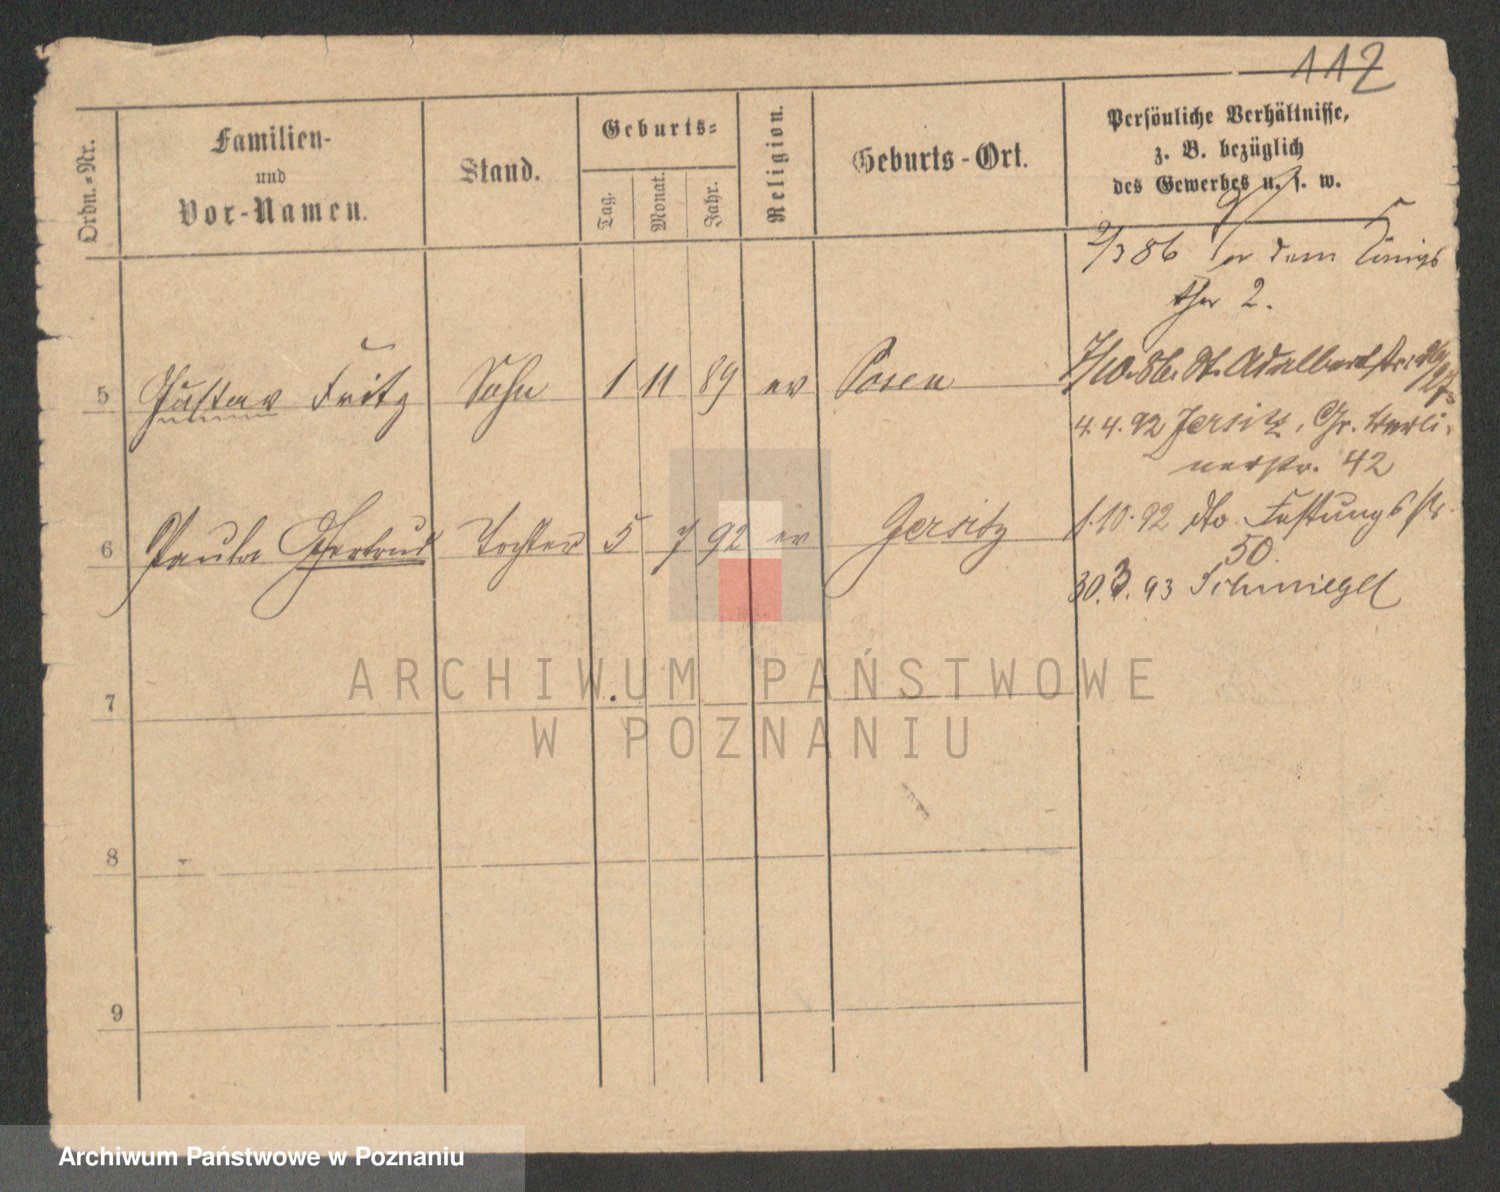 112
Ordn.-Nr.
Familien-
und
Vor-Namen.
Stand.
Geburts-
Tag.
Monat.
Jahr.
Religion.
Geburts-Ort.
Persönliche Verhältnisse,
z. B. bezüglich
des Gewerbes u. s. w.
9/3 86 vor dem Königs
thor 2.
5 Gustav Fritz Sohn 1 11 89 ev Posen
7/10. 86. St. Adalbertstr.
4.4.92 Jersitz, Gr. Berli-
nerstr. 42
6 Paula Gertrud Tochter 5 7 92 ev Jersitz
1.10.92 dto. Festungsstr.
50.
30.3.93 Schmiegel
7
8
9
ARCHIWUM PAŃSTWOWE
W POZNANIU
Archiwum Państwowe w Poznaniu